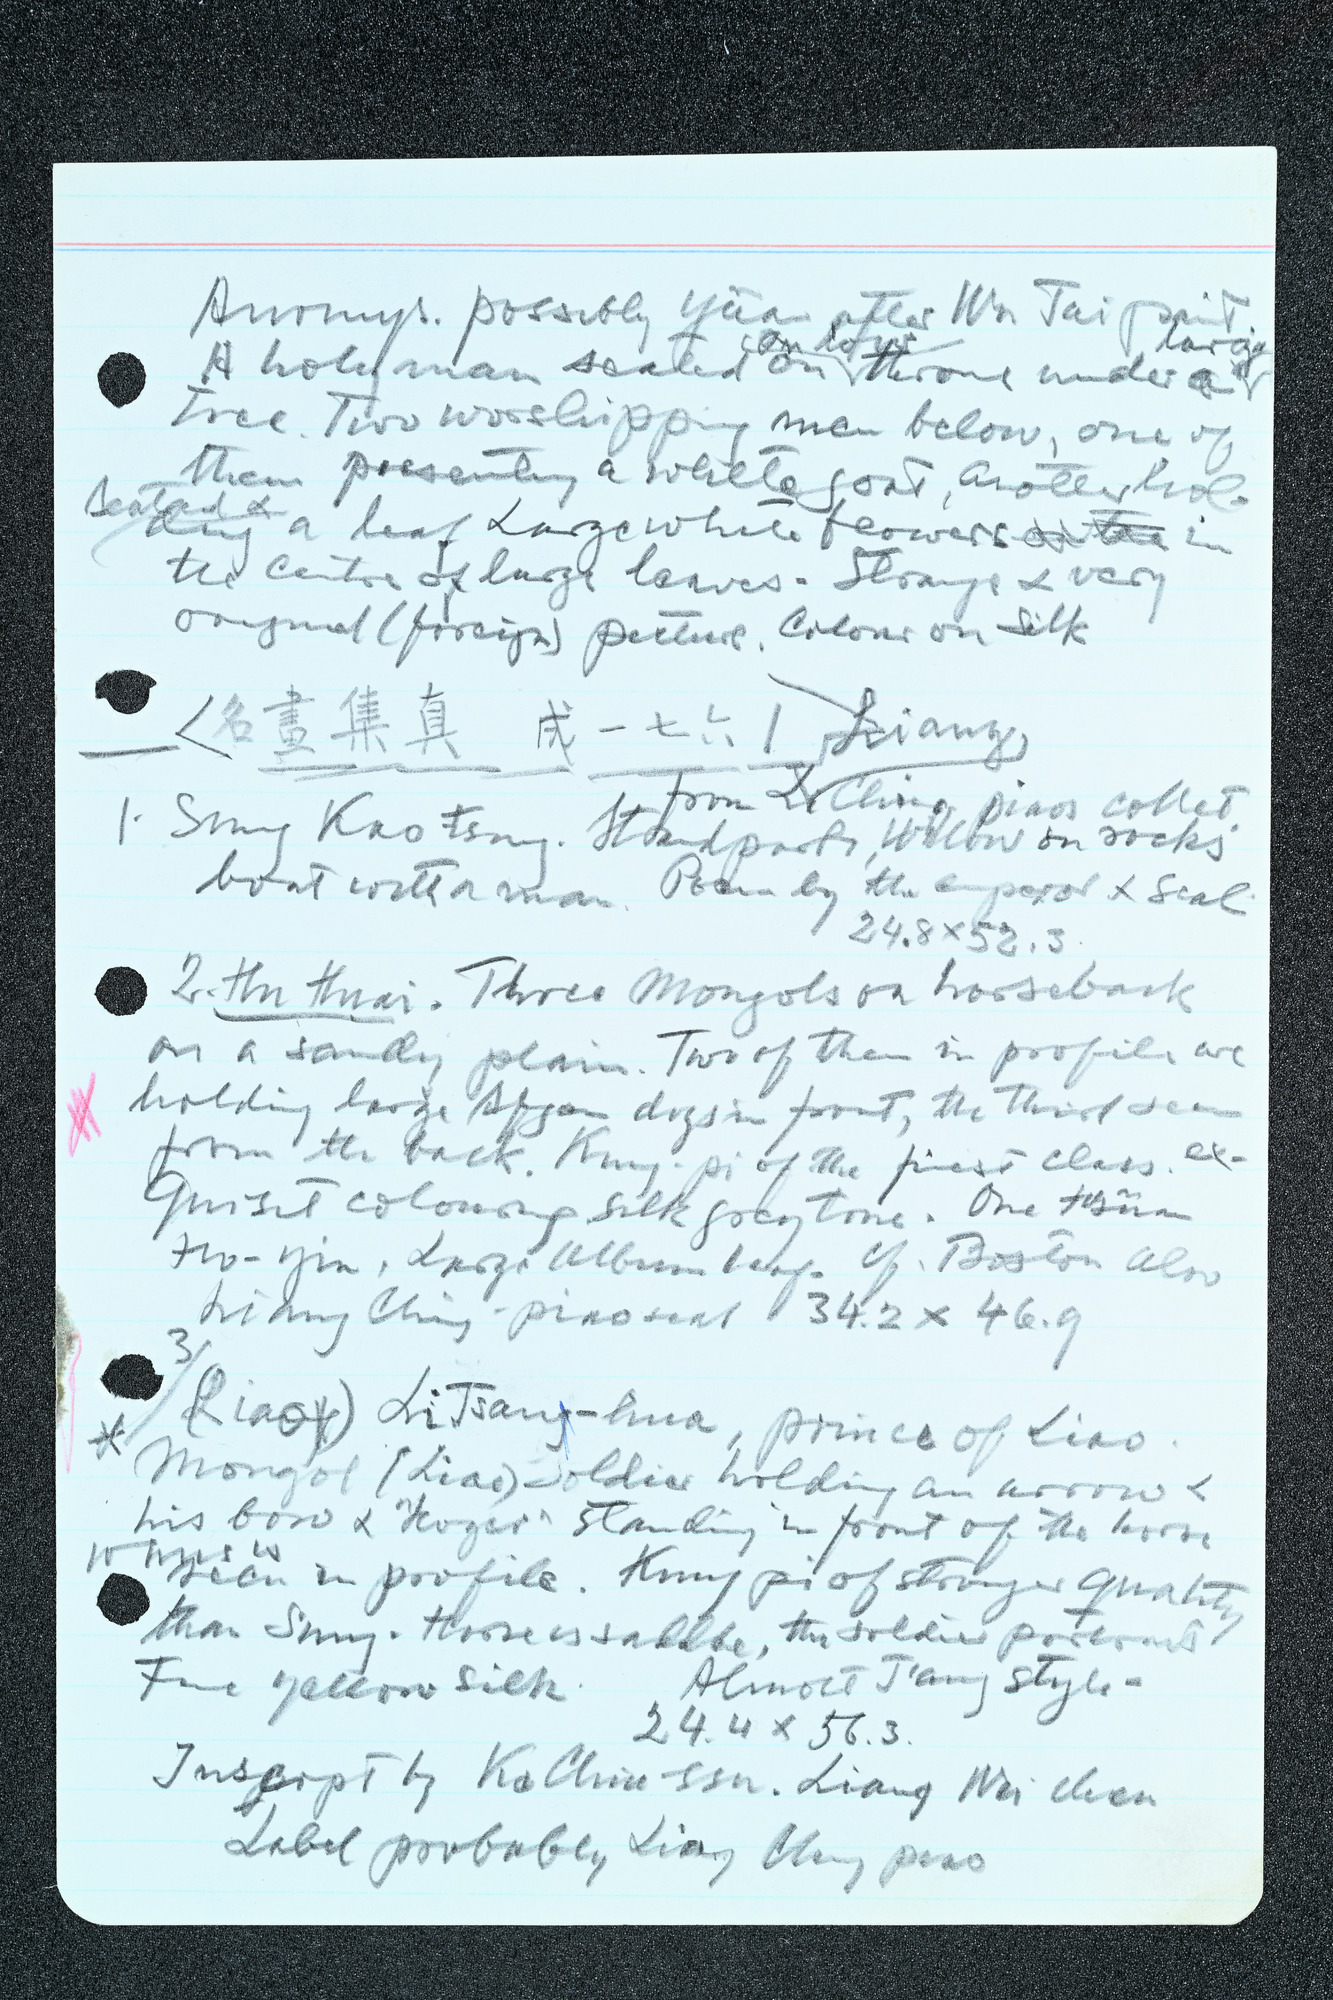 Anomys. possibly Yüan after Wu Tai paint.
A holy man seated on throne under a large
tree. Two worshipping men below, one of
them presenting a white goat, another hol-
seated &
ding a leaf Large white flowers in
the centre of large leaves - Strange & very
original (foreign) picture. Colour on silk
名畫集真 成一七六 | Liang
from L. Ching piaos collect.
1. Sung Kao tsung. Willow on rocks
boat with a man. Poem by the emperor & seal
24.8 x 52.3.
2. Hu Huai. Three Mongols on horseback
on a sandy plain. Two of them in profile are
holding large Afgan dogs in front, the third seen
from the back. Kung-pi of the finest class. ex-
quisit colouring silk grey tone. One Hsüan
Ho-yin, Large Album leaf. Cf. Boston also
Liang Ching-piao seal 34.2 x 46.9
3/
(Liao) Li Tsang-hua, prince of Liao.
Mongol (Liao) soldier holding an arrow &
his bow & standing in front of the horse
seen in profile. Kung pi of stronger quality
than Sung. Horse is saddle, the soldier portrait
Fine yellow silk. Almost T'ang style -
24.4 x 56.3.
Inscript by Ko Chiu-ssu. Liang Wei chen
Label probably Liang Ching piao